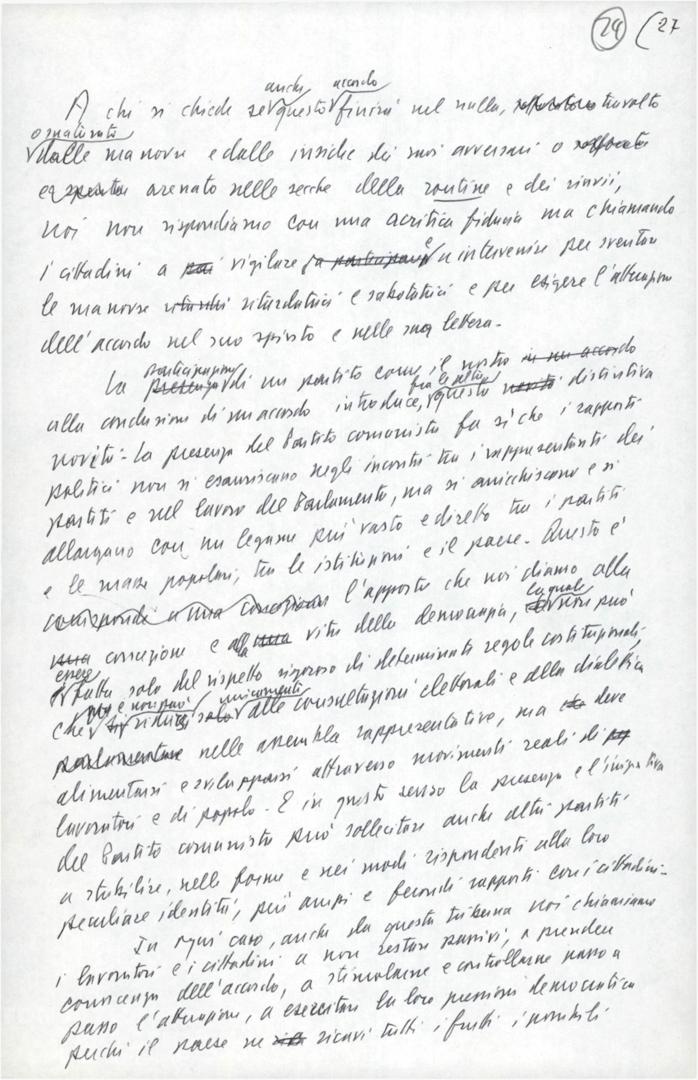 24 (27
A chi si chiede se anche questo accordo finirà nel nulla, travolto
o snaturato dalle manovre e dalle insidie dei suoi avversari o
arenato nelle secche della routine e dei rinvii,
noi non rispondiamo con una acritica fiducia ma chiamando
i cittadini a vigilare e a intervenire per sventare
le manovre ritardatrici e sabotatrici e per esigere l'attuazione
dell'accordo nel suo spirito e nella sua lettera.
La partecipazione di un partito come il nostro
alla conclusione di un accordo introduce, fra le altre, questa distintiva
novità: la presenza del Partito comunista fa sì che i rapporti
politici non si esauriscano negli incontri tra i rappresentanti dei
partiti e nel lavoro del Parlamento, ma si arricchiscano e si
allargano con un legame più vasto e diretto tra i partiti
e le masse popolari, tra le istituzioni e il paese. Questo è
l'apporto che noi diamo alla
concezione e alla vita della democrazia, la quale non può
essere fatta solo del rispetto rigoroso di determinate regole costituzionali,
che non può ridursi unicamente alle consultazioni elettorali e alla dialettica
nelle assemblee rappresentative, ma deve
alimentarsi e svilupparsi attraverso movimenti reali di
lavoratori e di popolo. E in questo senso la presenza e l'iniziativa
del Partito comunista può sollecitare anche altri partiti
a stabilire, nelle forme e nei modi rispondenti alla loro
peculiare identità, più ampi e fecondi rapporti con i cittadini.
In ogni caso, anche da questa tribuna noi chiamiamo
i lavoratori e i cittadini a non restare passivi, a prendere
conoscenza dell'accordo, a stimolarne e controllarne passo a
passo l'attuazione, a esercitare la loro pressione democratica
perché il paese ne ricavi tutti i frutti possibili